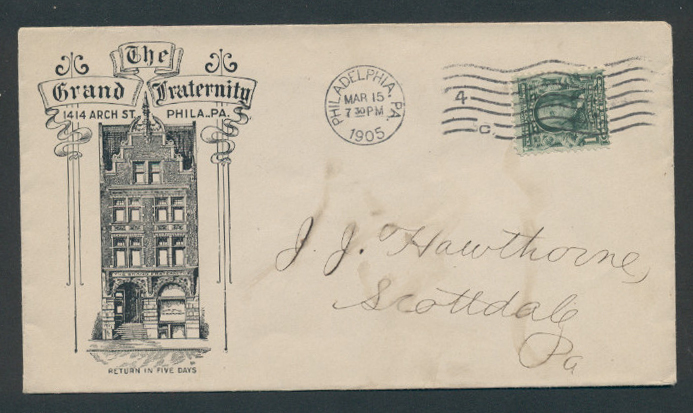 The
Grand Fraternity
1414 ARCH ST. PHILA., PA.
RETURN IN FIVE DAYS
PHILADELPHIA, PA.
MAR 15
7 30 PM
1905
4
C.
J. J. Hawthorne,
Scottdale
Pa